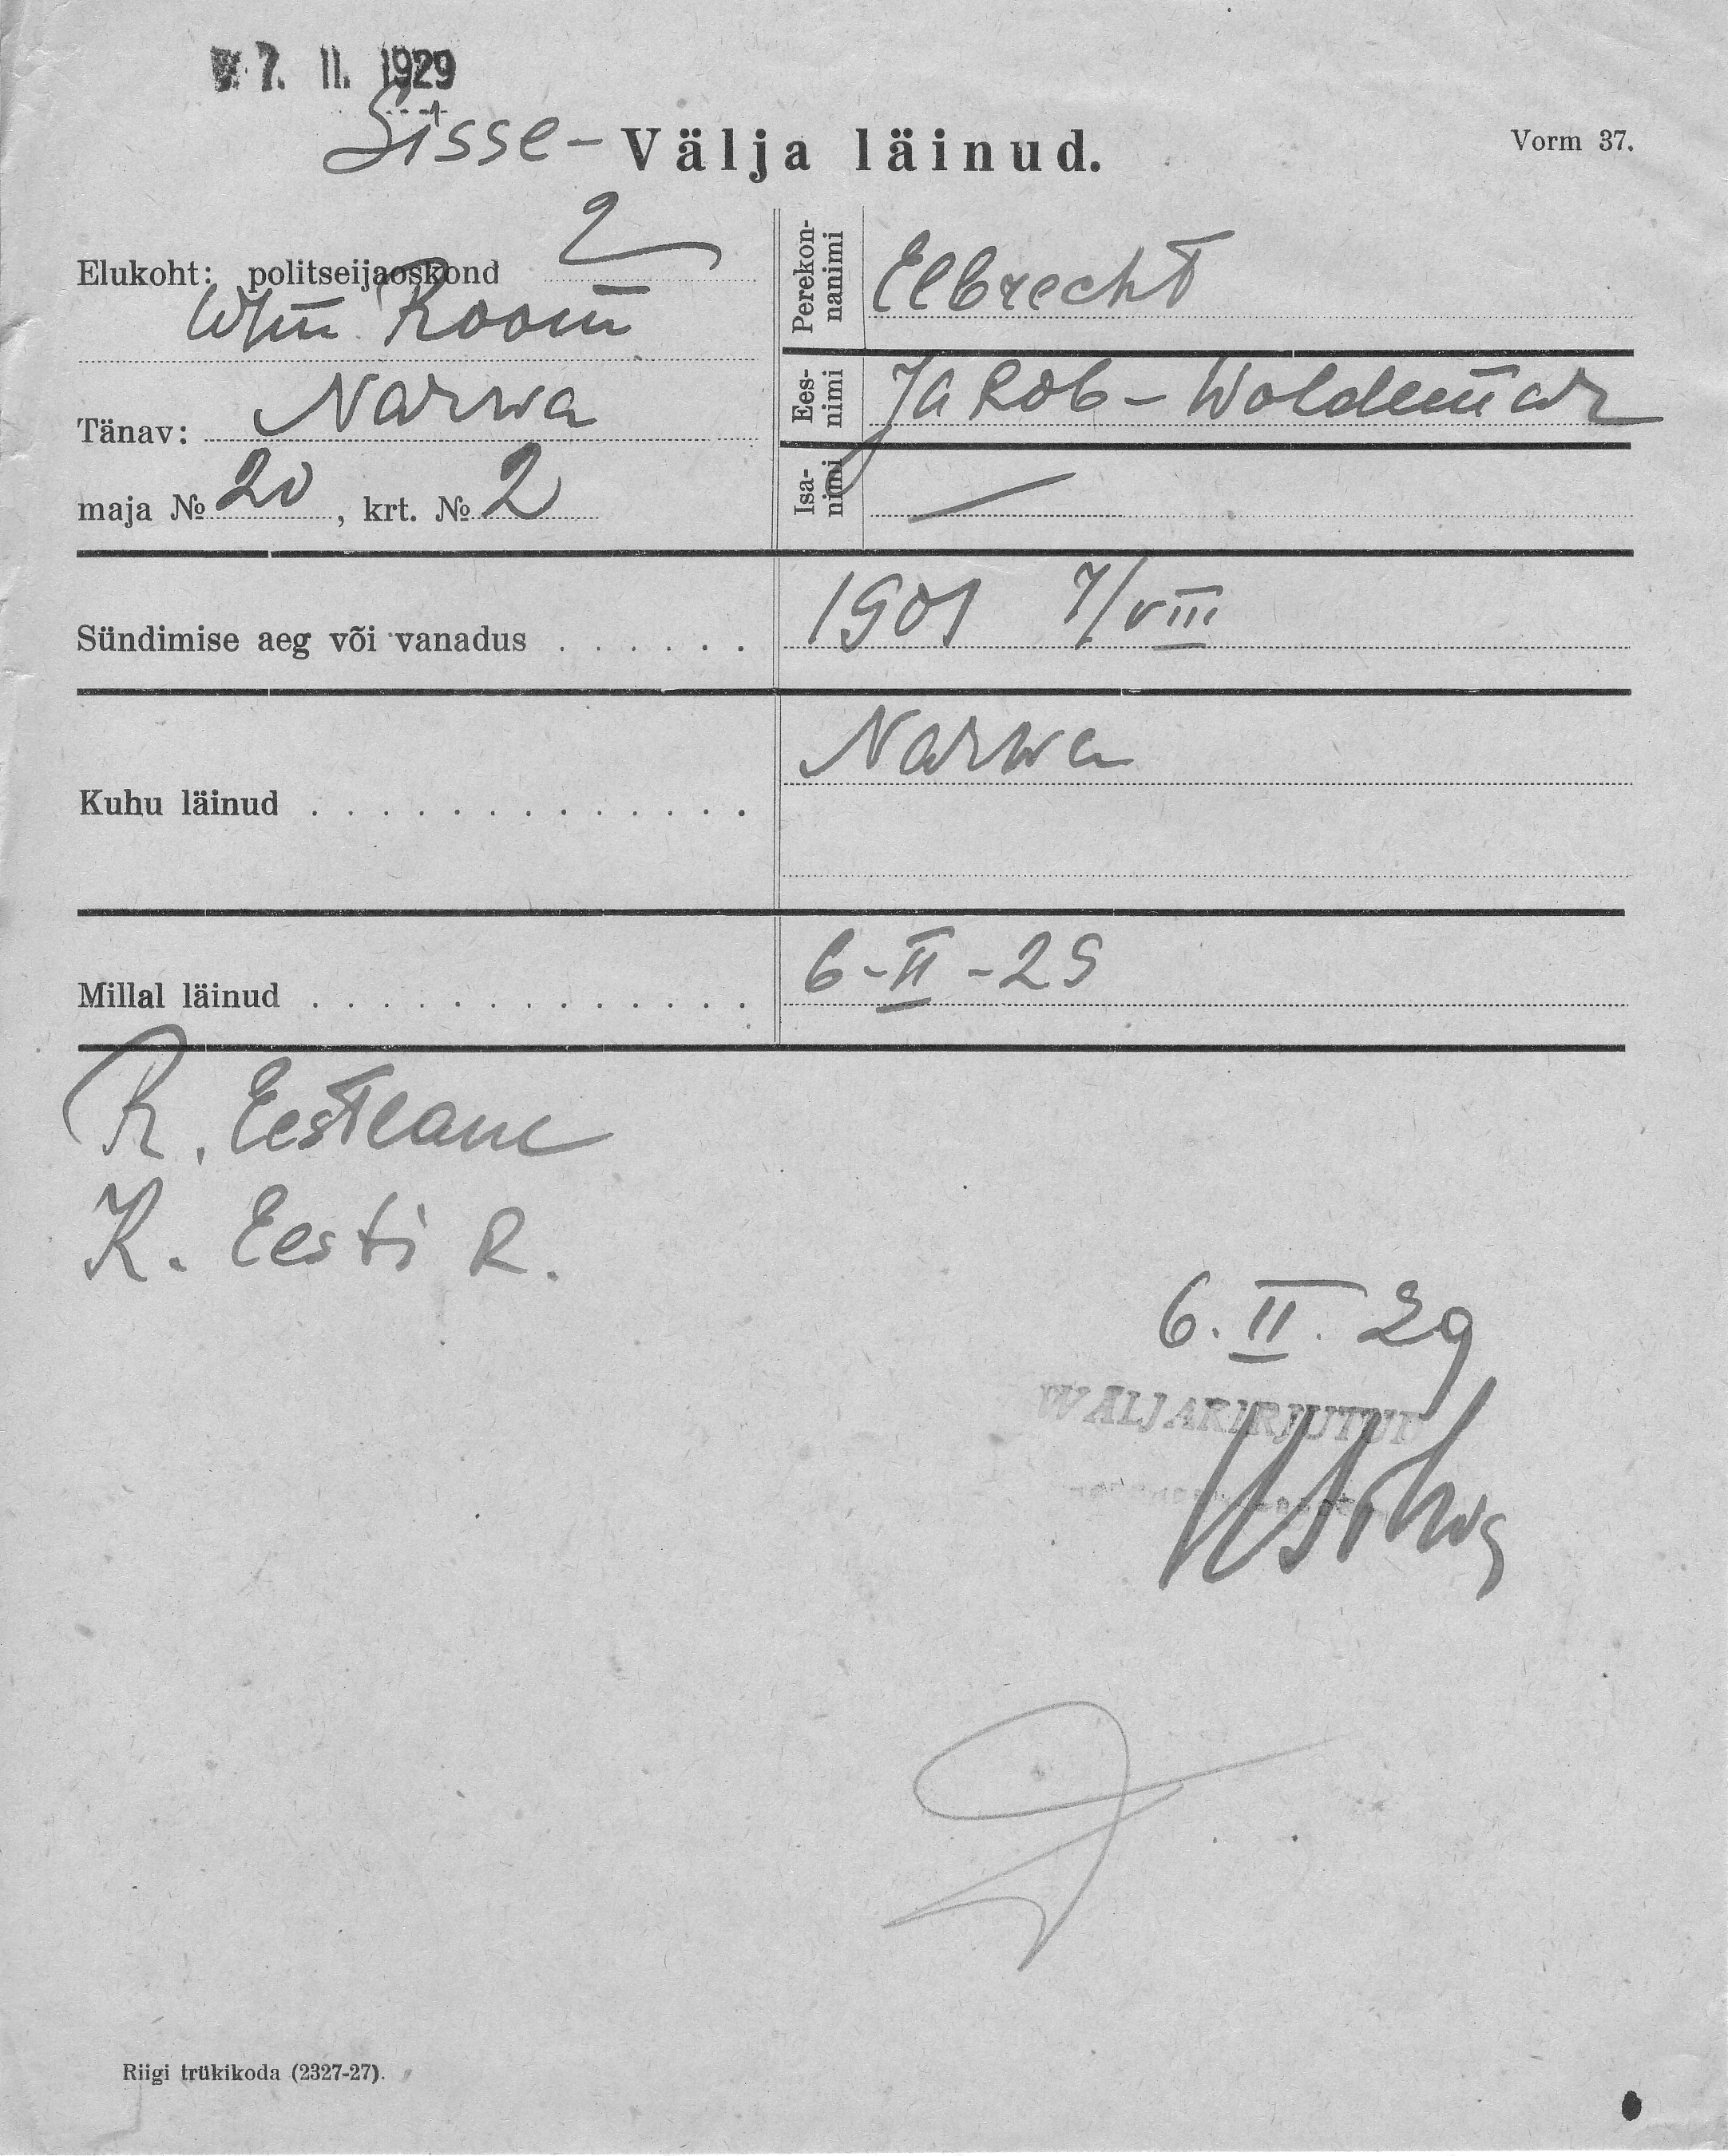 7. II. 1929
Sisse- Välja läinud.
Vorm 37.
Elukoht: politseijaoskond 2
Room
Tänav: Narwa
maja № 20, krt. № 2
Perekonnanimi Elbrecht
Eesnimi Jakob-Woldemar
Isanimi —
Sündimise aeg või vanadus . . . . . . 1901 7/VIII
Kuhu läinud . . . . . . . . . . . . . Narwa
Millal läinud . . . . . . . . . . . . . 6-II-29
R. Eestlane
K. Eesti R.
6. II. 29
WÄLJAKIRJUTUD
Riigi trükikoda (2327-27).